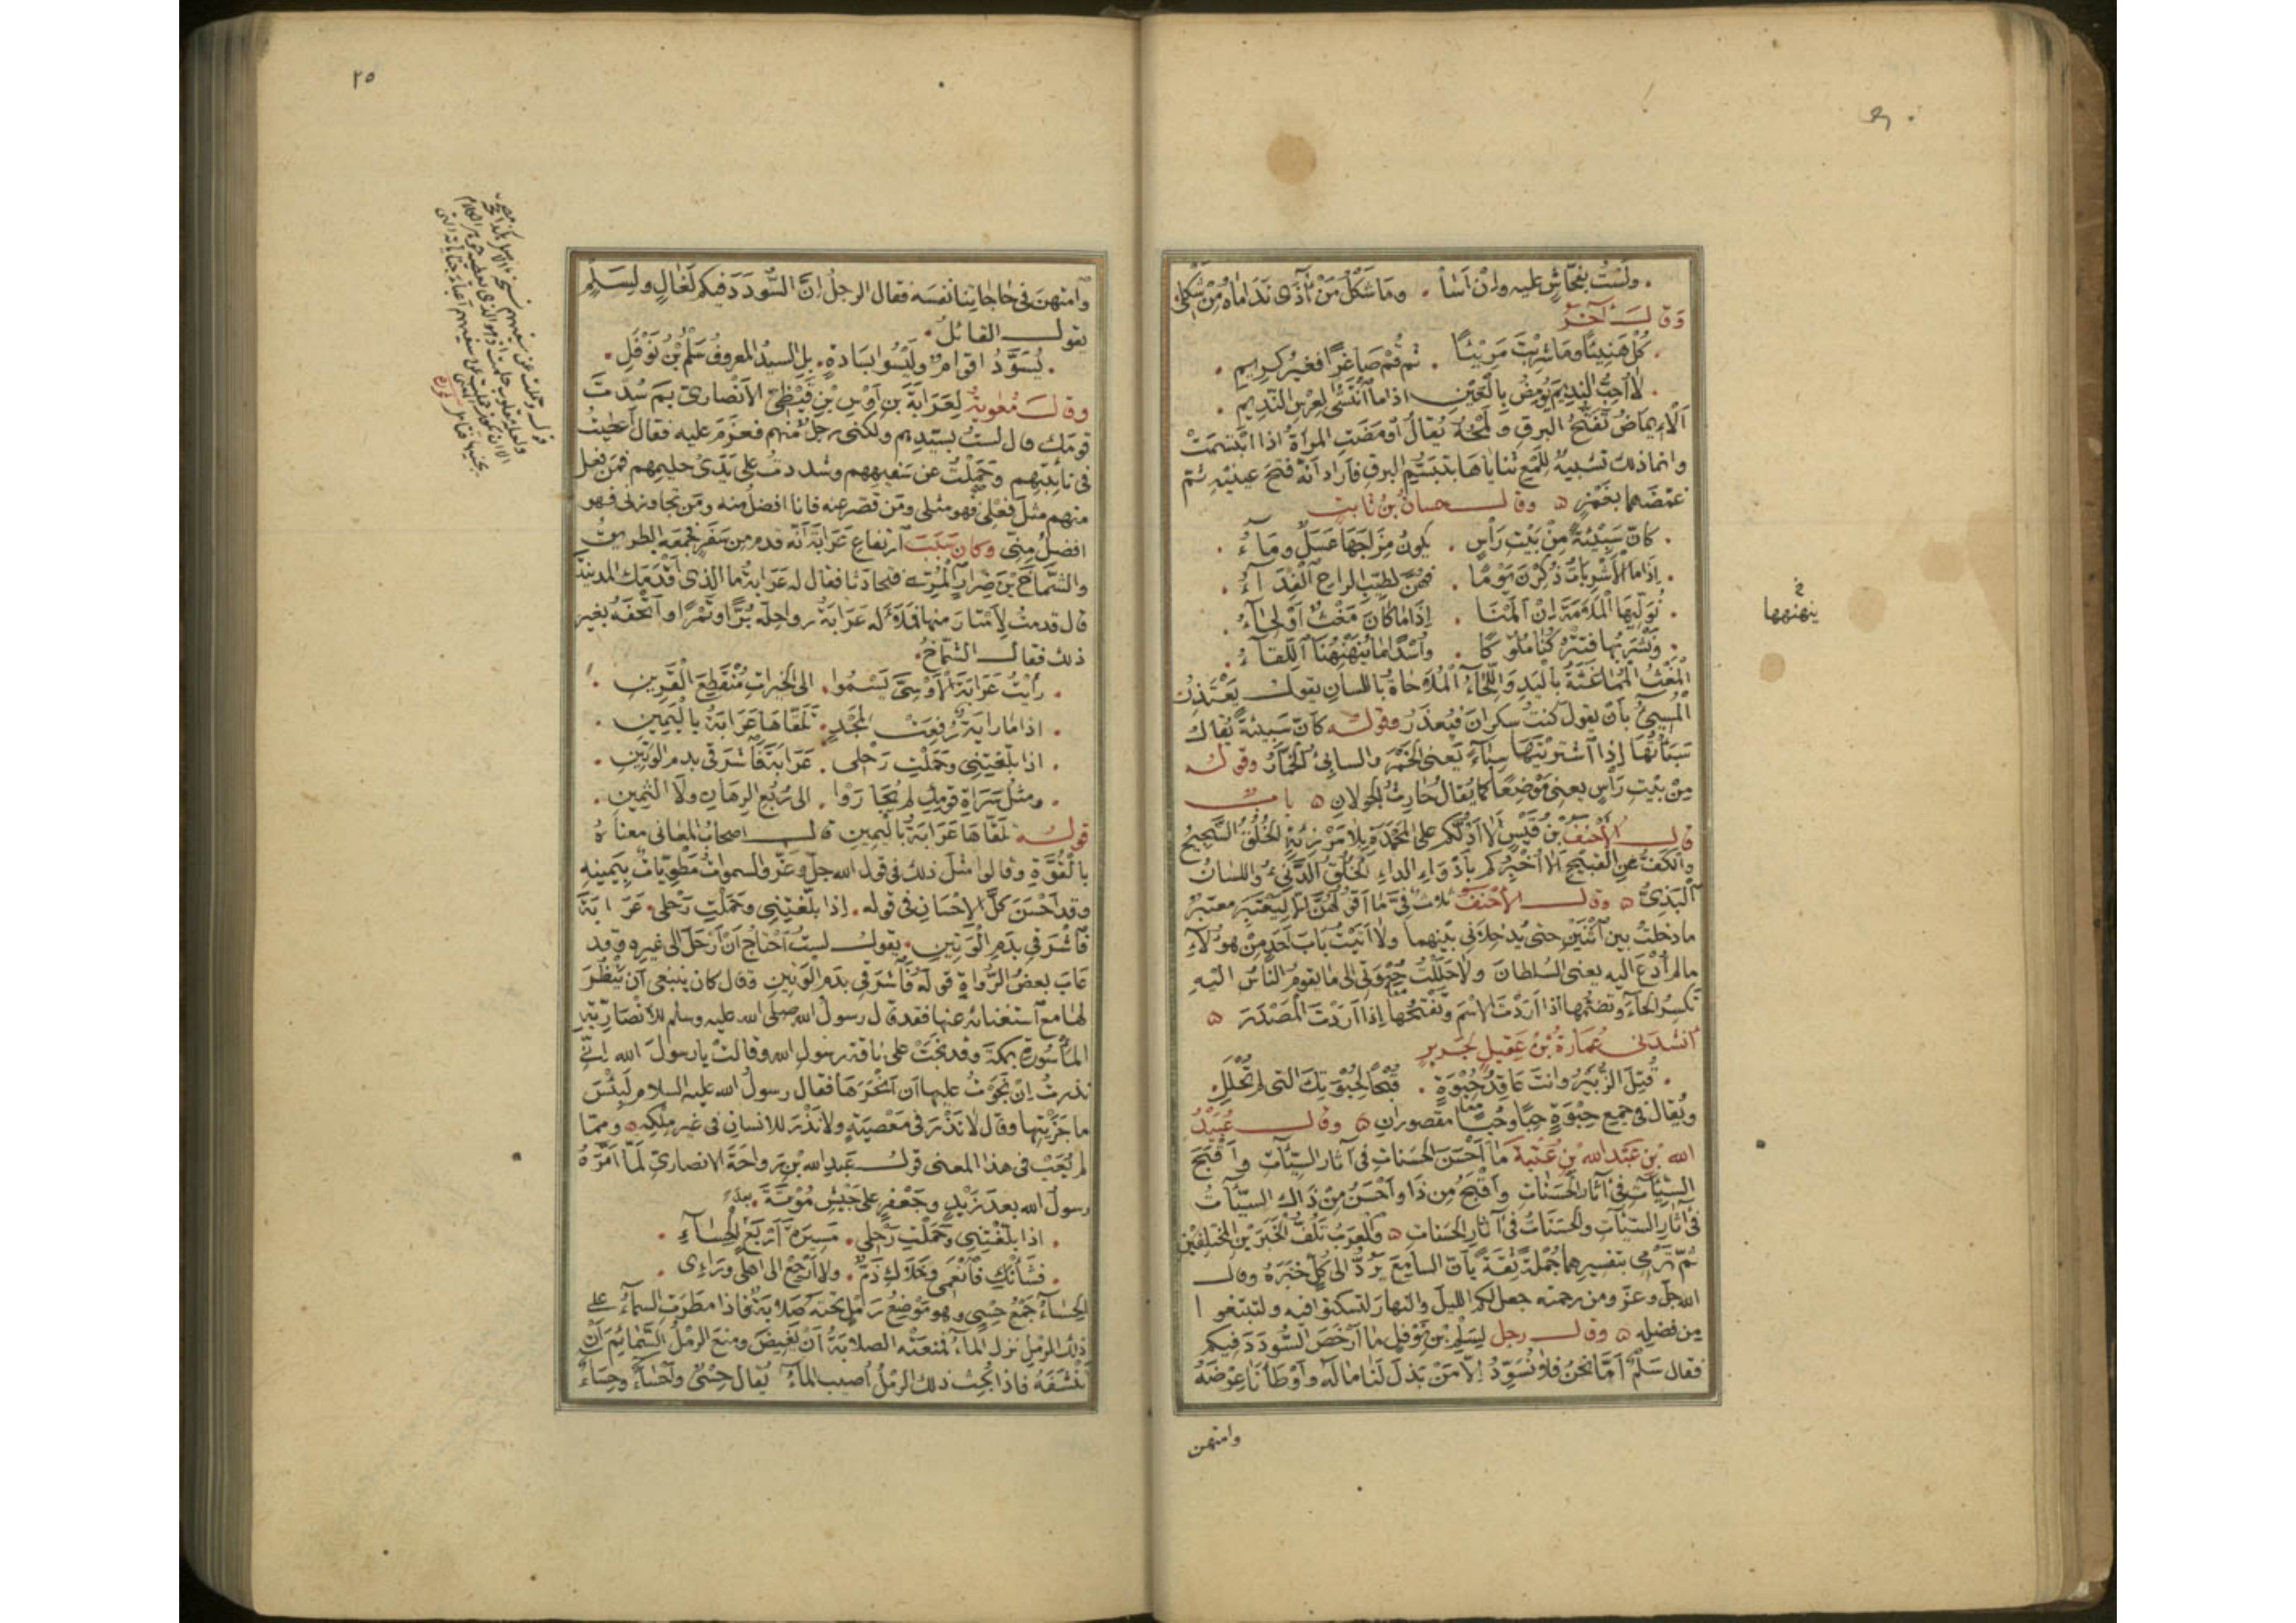 ولَسْتُ بفَحّاشٍ عليه وإنْ اَسَا . ومَا شَكْلُ مَنْ آذَى نَدَامَاهُ مِنْ شَكْلِى
وَقالَ آخَرُ
كُلْ هَنِيئًا ومَا شرِبْتَ مَرِيْئًا . ثم قُمْ صَاغرًا فغيرُ كريمِ
لَا أُحِبُّ النديمَ يُومِضُ بِالْعَيْنِ اذا ما اَنْتَشَى لِعِرْسِ النديم
اَلْاِيمَاضُ تَفَتُّحُ البرقِ ولَمْحُهُ يُقالُ اَوْمَضَتِ المرأةُ اذا ابْتَسَمَتْ
وانما ذلك تشبيهٌ لِلَمْعِ ثناياهَا بتبسُّمِ البرقِ فأراد أنّهُ فتحَ عينيهِ ثمّ
غمّضَهما بغَمْزٍ ۵ وقالَ حسانُ بنُ ثابتٍ
كاَنّ سَبِيْئَةً مِنْ بَيْتِ رَأْسٍ . يكونُ مِزَاجَهَا عَسَلٌ ومَآءُ
إذَا مَا الْاَشْرِبَاتُ ذُكِرْنَ يَوْمًا . فهُنَّ لطَيِّبِ الراحِ الْفِدَآءُ
نُوَلِّيهَا الْمَلَامَةَ إِنْ اَلَمْنَا . إِذَا مَا كَانَ مَغْثٌ اَوْ لِحَآءُ
ونَشْرَبُهَا فتترُكُنَا مُلُوكًا . وأُسْدًا ما يُنَهْنِهُنَا اللِّقَآءُ
الْمَغْثُ الْمُمَاغَثَةُ بِالْيَدِ وَاللِّحَآءُ الْمُلَاحَاةُ باللسانِ يقولُ يَعْتَذِرُ
الْمُسِيئُ بأنْ يقولَ كنتُ سكرانَ فيُعذَرُ وقولُه كأنّ سَبِيْئَةً يُقالُ
سَبَأْتُهَا إذَا اشتريتَهَا سِبَاءً يَعنى الخَمْرَ والسابئُ الخَمَّارُ وقولُه
مِنْ بَيْتِ رَأْسٍ يعنى مَوْضِعًا كما يُقالُ حَارِثُ الجَولانِ ۵ باب
قالَ الأحْنَفُ بنُ قَيْسٍ أَلَا أدُلُّكم على المَحْمَدَةِ بِلَا مَرْزِئَةٍ الخُلُقُ السَّجِيحُ
والكَفُّ عنِ القَبِيْحِ ألَا أُخْبِرُكم بِأَدْوَاءِ الداءِ الخُلُقُ الدَّنِىءُ واللسانُ
البَذِىُّ ۵ وقالَ الأحْنَفُ ثلاثٌ فِىَّ مَا أقولُهُنَّ إلّا لِيَعْتَبِرَ معتبِرٌ
ما دخلتُ بين اثنَيْنِ حتى يُدخِلَانِى بينهما ولا اَتَيْتُ بابَ أحَدٍ مِنْ هؤلاءِ
ما لم أُدْعَ اليه يعنى السُلطانَ ولا حَلَلْتُ حِبْوَتِى إلى ما يقومُ النَاسُ اليهِ
تكسِرُ الحاءَ وتضُمُّها اذا اَرَدْتَ الاسْمَ وتَفْتَحُها إذا اَرَدْتَ المَصْدَرَ ۵
أنشدَنى عُمَارَةُ بْنُ عَقِيلٍ لجَرِيرٍ
قُتِلَ الزُّبَيرُ وانتَ عَاقِدُ حُبْوَةٍ . قُبْحًا لِحُبْوَتِكَ التى لم تُحْلَلِ
ويُقالُ فى جمعِ حِبْوَةٍ حِبًا وحُبًا مقصورانِ ۵ وقالَ عُبَيْدُ
اللهِ بنُ عبدِ اللهِ بنِ عُتْبَةَ مَا أَحْسَنَ الحَسَناتِ فى آثارِ السيّئاتِ وأقبَحَ
السيّئاتِ فى آثارِ الحَسَناتِ وأقبَحُ مِن ذَا وأحْسَنُ مِنْ ذَاكَ السيّئاتُ
فى آثارِ السيّئاتِ والحَسَناتُ فى آثارِ الحَسَناتِ ۵ والعَرَبُ تَلُفُّ الخَبَرَيْنِ المختلِفَيْنِ
ثم تَرْمِى بتفسيرِهما جُمْلةً ثِقَةً بأنّ السامِعَ يَرُدُّ الى كُلٍّ خبَرَهُ وقالَ
اللهُ جلّ وعزّ ومن رحمته جعل لكم الليلَ والنهارَ لتسكنوا فيه ولتبتغوا
مِن فضلِه ۵ وقالَ رجل لِسَلْمِ بنِ نَوْفَلٍ ما أرْخَصَ السُّودَدَ فيكم
فقال سَلْمٌ أمَّا نحْنُ فلا نُسَوِّدُ إلّا مَنْ بَذَلَ لَنَا مالَهُ وأَوْطَأَنَا عِرْضَهُ
وامتهن
ينهنهها
٢٥
وامتهنَ فى حاجاتِنا نفسَه فقال الرجلُ إنَّ السُّودَدَ فيكم لَغَالٍ ولِسَلْمٍ
يقولُ القائلُ
يُسَوَّدُ اقوامٌ ولَيْسُوا بِسَادةٍ . بلِ السيدُ المعروفُ سَلْمُ بْنُ نَوْفَلِ
وقالَ مُعٰويةُ لِعَرَابَةَ بنِ أَوْسِ بْنِ قَيْظِىٍّ الأنْصارىِّ بِمَ سُدْتَ
قومَك قال لستُ بسَيّدِهم ولكنى رجلٌ منهم فعزَم عليه فقال أعطيتُ
فى نائبتِهم وحَمَلْتُ عن سَفيهِهم وشددتُ على يَدَىْ حليمِهم فمَن فعل
منهم مثلَ فِعْلِى فهو مثلى ومَن قصّر عنه فانا افضلُ منه ومَن تجاوزنى فهو
افضلُ مِنّى وكان سَبَبُ ارتفاعِ عَرَابةَ أنّه قدم من سَفَرٍ فجمعَه الطريقُ
والشَّمَّاخَ بْنَ ضِرَارٍ المُرِّىَّ فتحادَثا فقال له عَرَابةُ ما الذى أقْدَمَك المدينةَ
قال قدمتُ لِأَمْتَارَ منها فمَلَأَ له عَرَابةُ رواحِلَه بُرًّا وتَمْرًا واَتْحَفَه بغير
ذلك فقال الشمّاخُ
رأيتُ عَرَابَةَ الأَوْسِىَّ يَسْمُوا . الى الخيراتِ مُنْقَطِعَ الْقَرِينِ
اذا ما رايةٌ رُفِعَتْ لمَجْدٍ . تَلَقَّاهَا عَرَابَةُ بِالْيَمِينِ
اذا بلَّغتِنِى وحَمَلْتِ رَحْلِى . عَرَابَةَ فَاشْرَقِى بدمِ الوَتِينِ
ومثلُ سَرَاةِ قومِكَ لم يُجَارَوْا . الى رُبُعِ الرِهَانِ ولَا الثمِينِ
قولُه تَلَقَّاهَا عَرَابَةُ بِالْيَمِينِ قالَ اصحابُ المعانى معناهُ
بالْقُوَّةِ وقالوا مثلَ ذلك فى قولِ الله جلّ وعزّ والسمواتُ مَطْوِيّاتٌ بِيَمِينِهِ
وقد أحْسَنَ كلَّ الإحْسَانِ فى قولِه . إذا بلَّغتِنِى وحَمَلْتِ رَحْلِى . عَرَابَةَ
فَاشْرَقِى بِدَمِ الْوَتِينِ . يقولُ لستُ أحتاجُ أنْ أرْحَلَ الى غيرِه وقد
عَابَ بعضُ الرُّواةِ قولَه فَاشْرَقِى بدَمِ الوَتِينِ وقال كان ينبغى أن يَنْظُرَ
لها مع استغنائه عنها فقد قال رسولُ الله صلى الله عليه وسلم للأنصاريّةِ
المأسُورةِ بمكةَ وقد نجَتْ على ناقةِ رسولِ الله وقالتْ يا رسولَ الله إنّى
نذرتُ إنْ نجَوْتُ عليها أن اَنْحَرَهَا فقال رسولُ الله عليه السلام لَبِئْسَ
ما جَزَيْتِها وقال لَا نَذْرَ فى مَعْصِيَةٍ ولا نَذْرَ للانسانِ فى غير مِلْكِه ۵ ومِمّا
لم يُعَبْ فى هذا المعنى قولُ عَبدِ الله بْنِ رواحَةَ الانصارىّ لَمّا اَمَّرَهُ
رسولُ الله بعدَ زَيْدٍ وجَعْفرٍ على جَيْشِ مُؤْتَةَ
اذا بلَّغتِنِى وحَمَلْتِ رَحْلِى . مَسِيرَةَ اَرْبَعٍ بَعْدَ الْحِسَآءِ
فشَأْنَكِ فَانْعَمِى وخَلَاكِ ذَمٌّ . ولا اَرْجِعْ الى اهلى ورَاءِى
الحِسَاءُ جَمْعُ حِسْىٍ وهو مَوْضِعُ رَمْلٍ تحتَه صَلَابَةٌ فاذا مطَرَتِ السماءُ على
ذلك الرملِ نزل الماءُ فمنعَتْه الصلابةُ أنْ يَغِيضَ ومنع الرملُ السَّمَائِمَ أنْ
تُنْشِفَهُ فاذا بُحِثَ ذلك الرمْلُ أُصيب الماءُ يُقال حِسْىٌ وأحْسَاءٌ وحِسَاءٌ